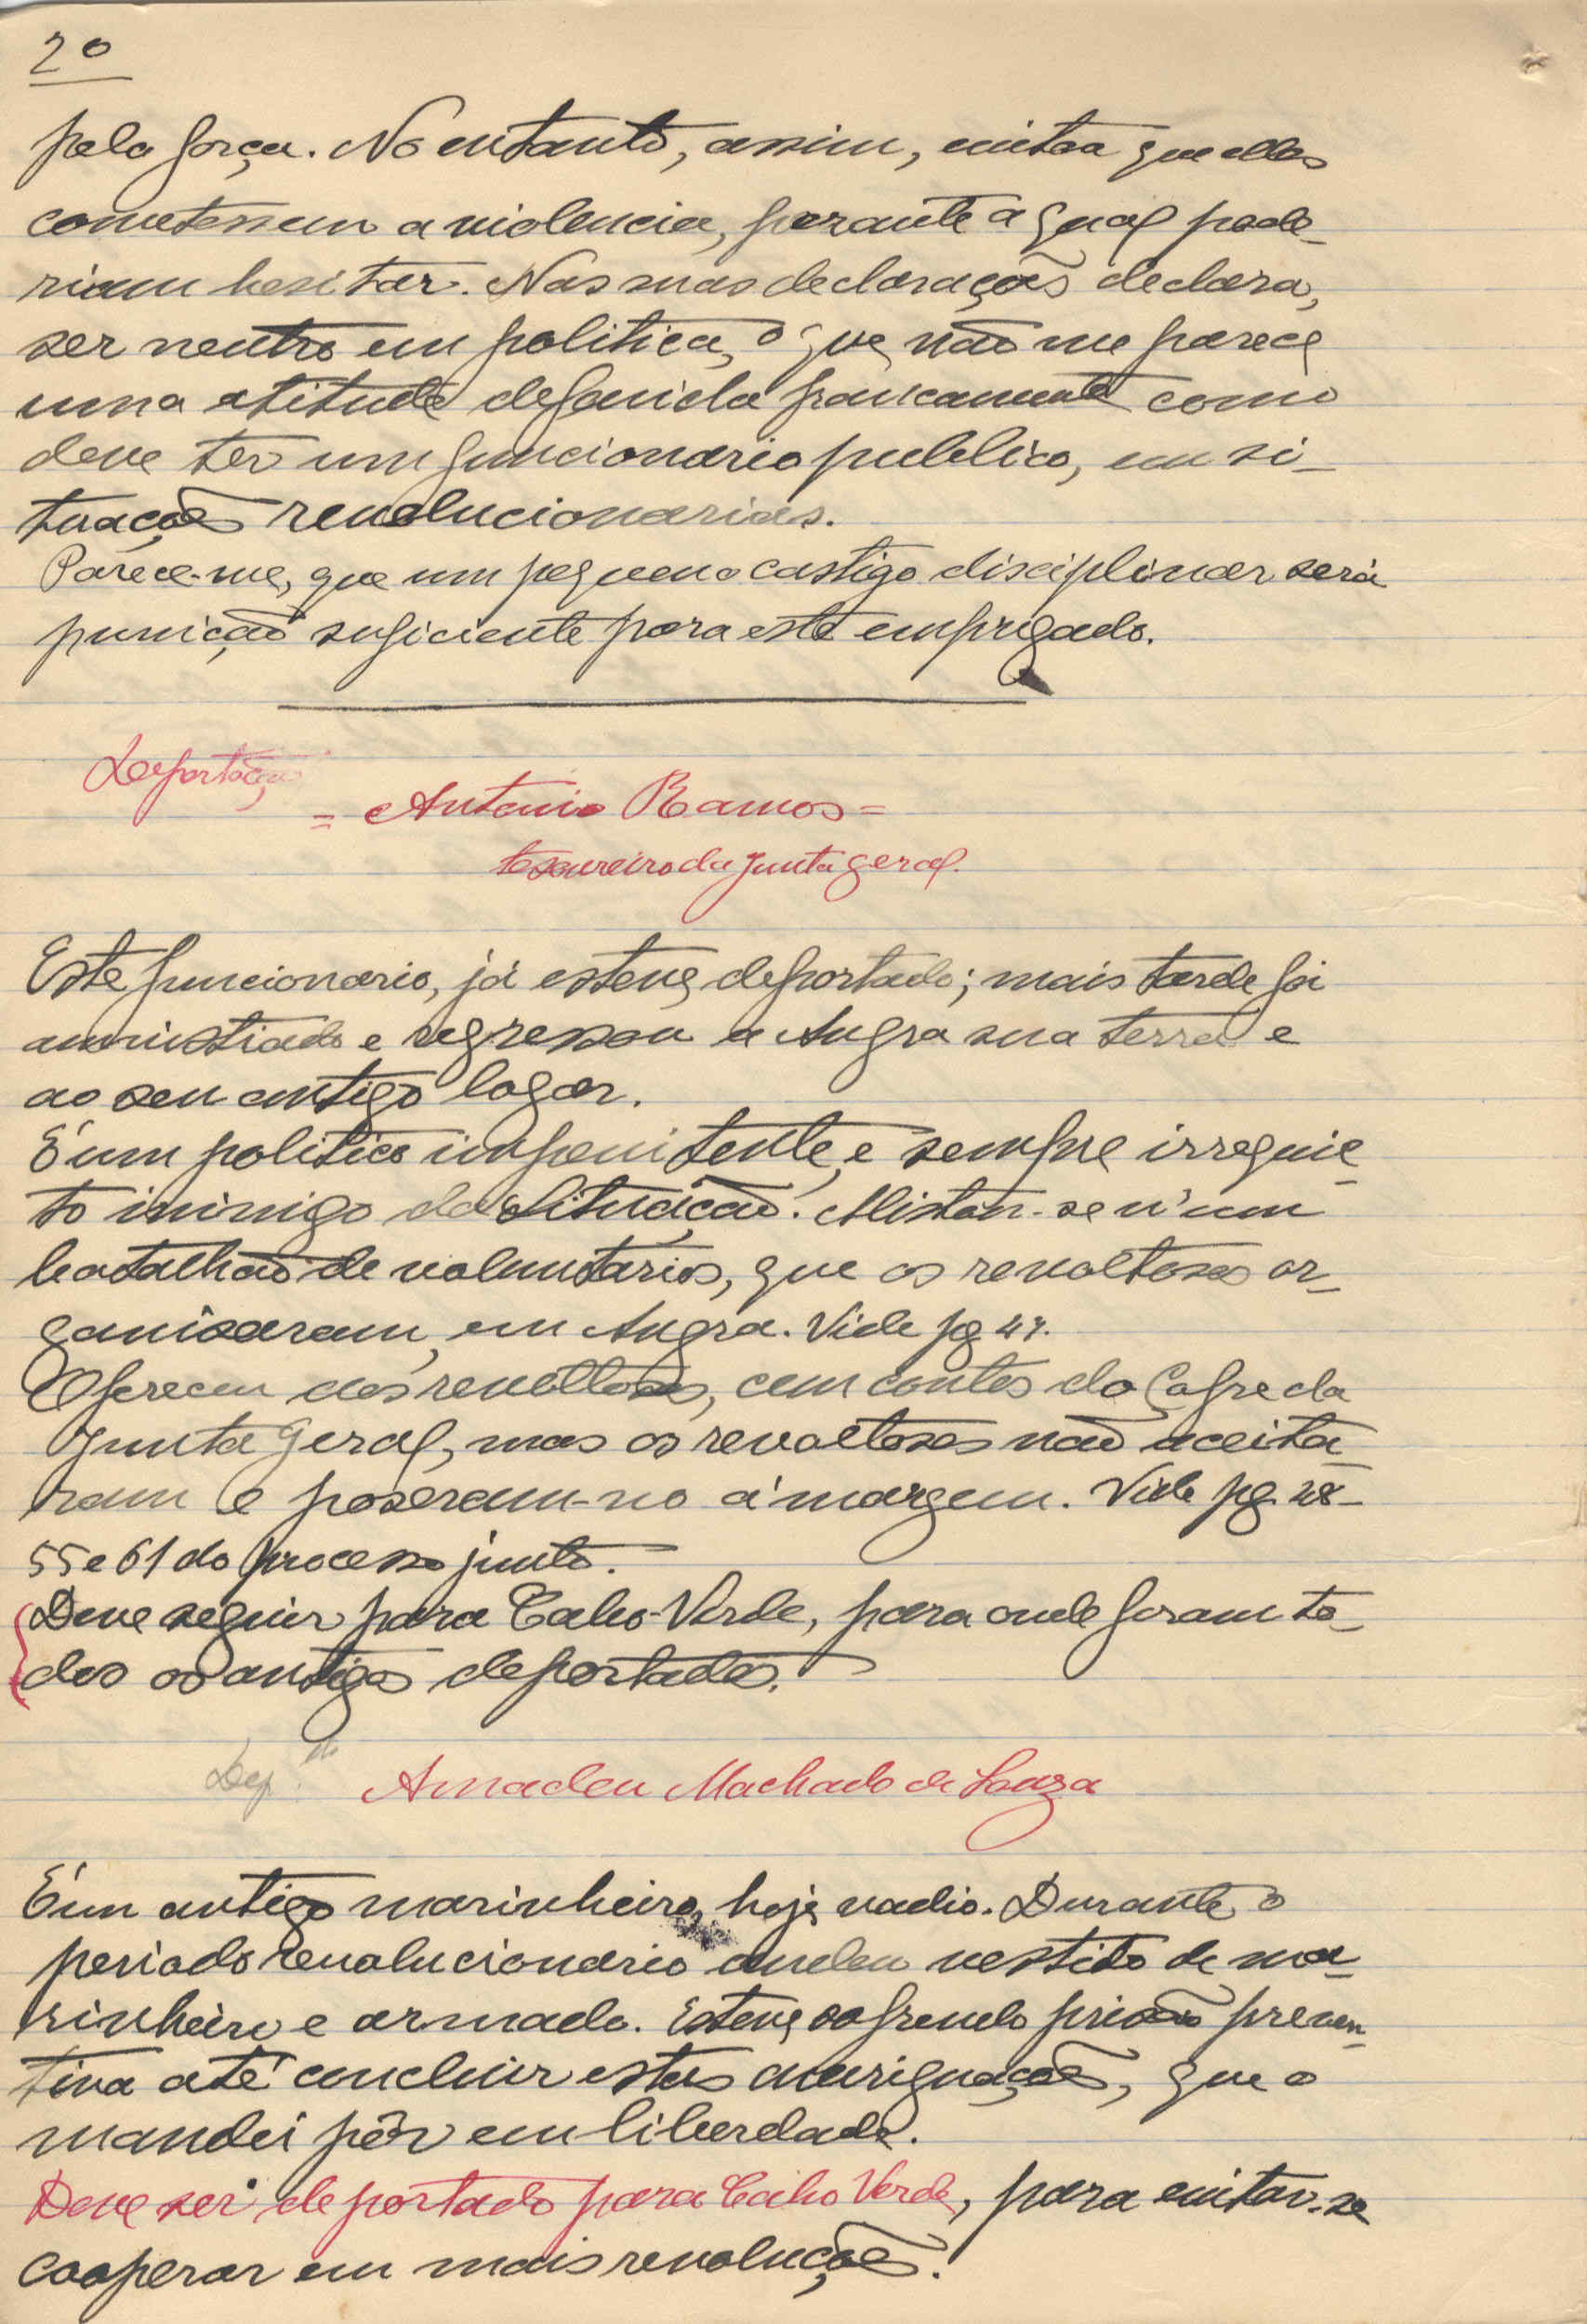 2º
pela força. No entanto, assim, evitou que elles
cometessem a violencia, perante a qual pode-
riam hesitar. Nas suas declarações declara,
ser neutro em politica, o que não me parece
uma atitude defenida francamente como
deve ter um funcionario publico, em si-
tuações revolucionarias.
Parece-me, que um pequeno castigo disciplinar será
punição suficiente para este empregado.
Deportação
= Antonio Ramos =
tesoureiro da Junta Geral.
Este funcionario, já esteve deportado; mais tarde foi
amnistiado e regressou a Angra sua terra e
ao seu antigo logar.
É um politico impenitente, e sempre irrequie-
to inimigo da Situação. Alistou-se n'um
batalhão de voluntarios, que os revoltosos or-
ganisaram, em Angra. Vide pg 47.
Ofereceu aos revoltosos, cem contos do Cofre da
Junta Geral, mas os revoltosos não aceita-
ram e poseram-no á margem. Vide pg. 48-
55 e 61 do processo junto.
Deve seguir para Cabo-Verde, para onde foram to-
dos os antigos deportados.
Dep.
Amadeu Machado de Souza
É um antigo marinheiro, hoje vadio. Durante o
periodo revolucionario andou vestido de ma-
rinheiro e armado. Esteve sofrendo prisão preven-
tiva até concluir estas averiguações, que o
mandei pôr em liberdade.
Deve ser deportado para Cabo Verde, para evitar-se
cooperar em mais revoluções.